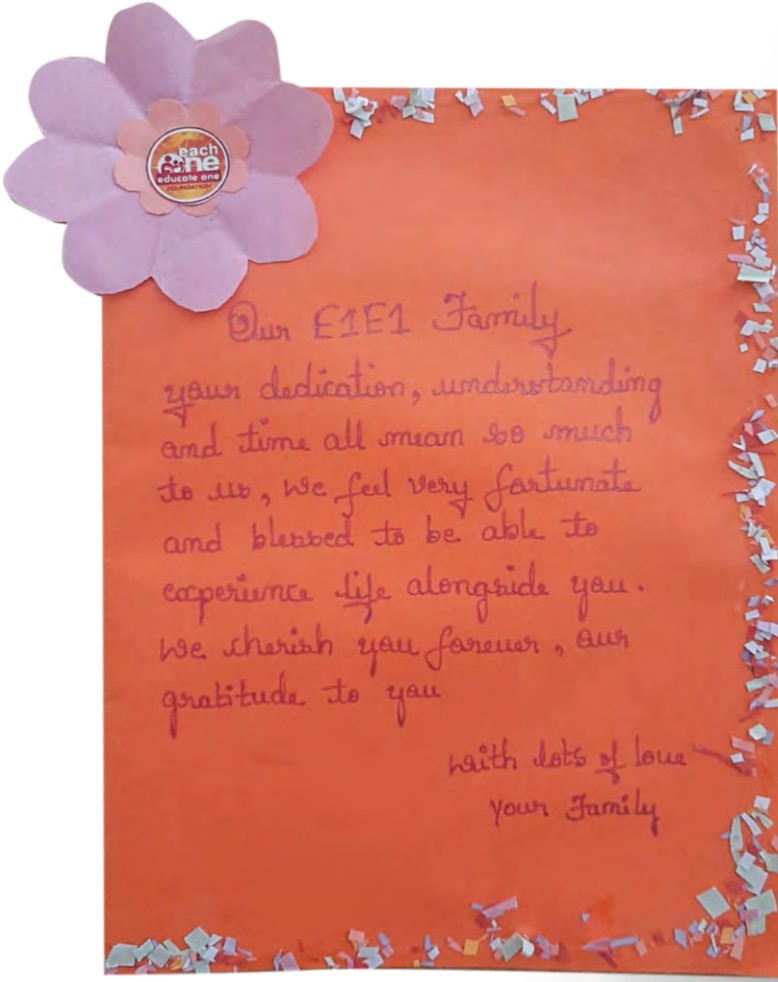 each
One
educate one
FOUNDATION
Our E1E1 Family
your dedication, understanding
and time all mean so much
to us, we feel very fortunate
and blessed to be able to
experience life alongside you.
we cherish you forever, our
gratitude to you
with lots of love
your Family